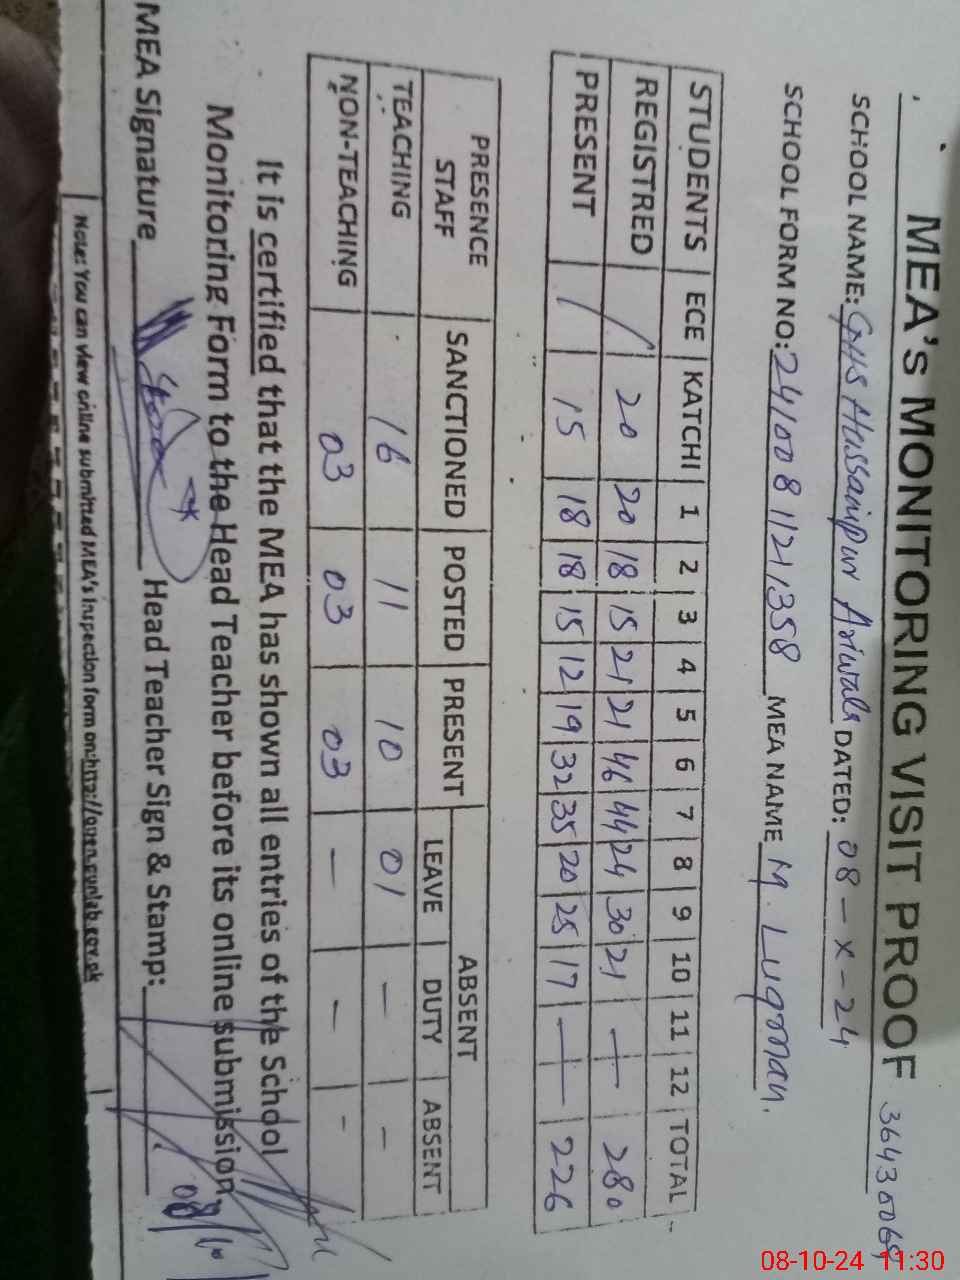 MEA's MONITORING VISIT PROOF 36430069
SCHOOL NAME: GHS Hussainpur Ariwala DATED: 08-X-24
SCHOOL FORM NO: 241008 1121,358 MEA NAME M. Luqman.
STUDENTS ECE KATCHI 1 2 3 4 5 6 7 8 9 10 11 12 TOTAL
REGISTRED / 20 20 18 15 21 21 46 44 24 30 21 — 280
PRESENT / 15 18 18 15 12 19 32 35 20 25 17 — 226
PRESENCE STAFF SANCTIONED POSTED PRESENT ABSENT
LEAVE DUTY ABSENT
TEACHING 16 11 10 01 — -
NON-TEACHING 03 03 03 — - -
It is certified that the MEA has shown all entries of the School
Monitoring Form to the Head Teacher before its online submission.
MEA Signature Head Teacher Sign & Stamp:
Note: You can view online submitted MEA's Inspection form on: http://open.punjab.gov.pk
08-10-24 11:30